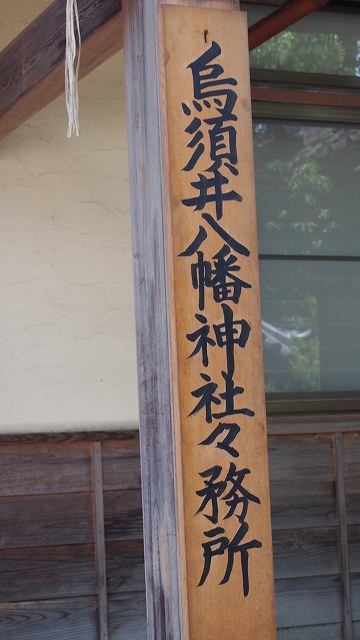 烏須井八幡神社々務所